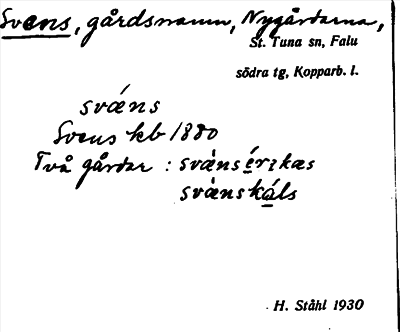 Svens, gårdsnamn, Nygårdarna,
St. Tuna sn, Falu
södra tg, Kopparb. l.
svæ̀ns
Svens kb 1880
Två gårdar : svæ̀nsérɪkæs
svæ̀nskáls
H. Ståhl 1930